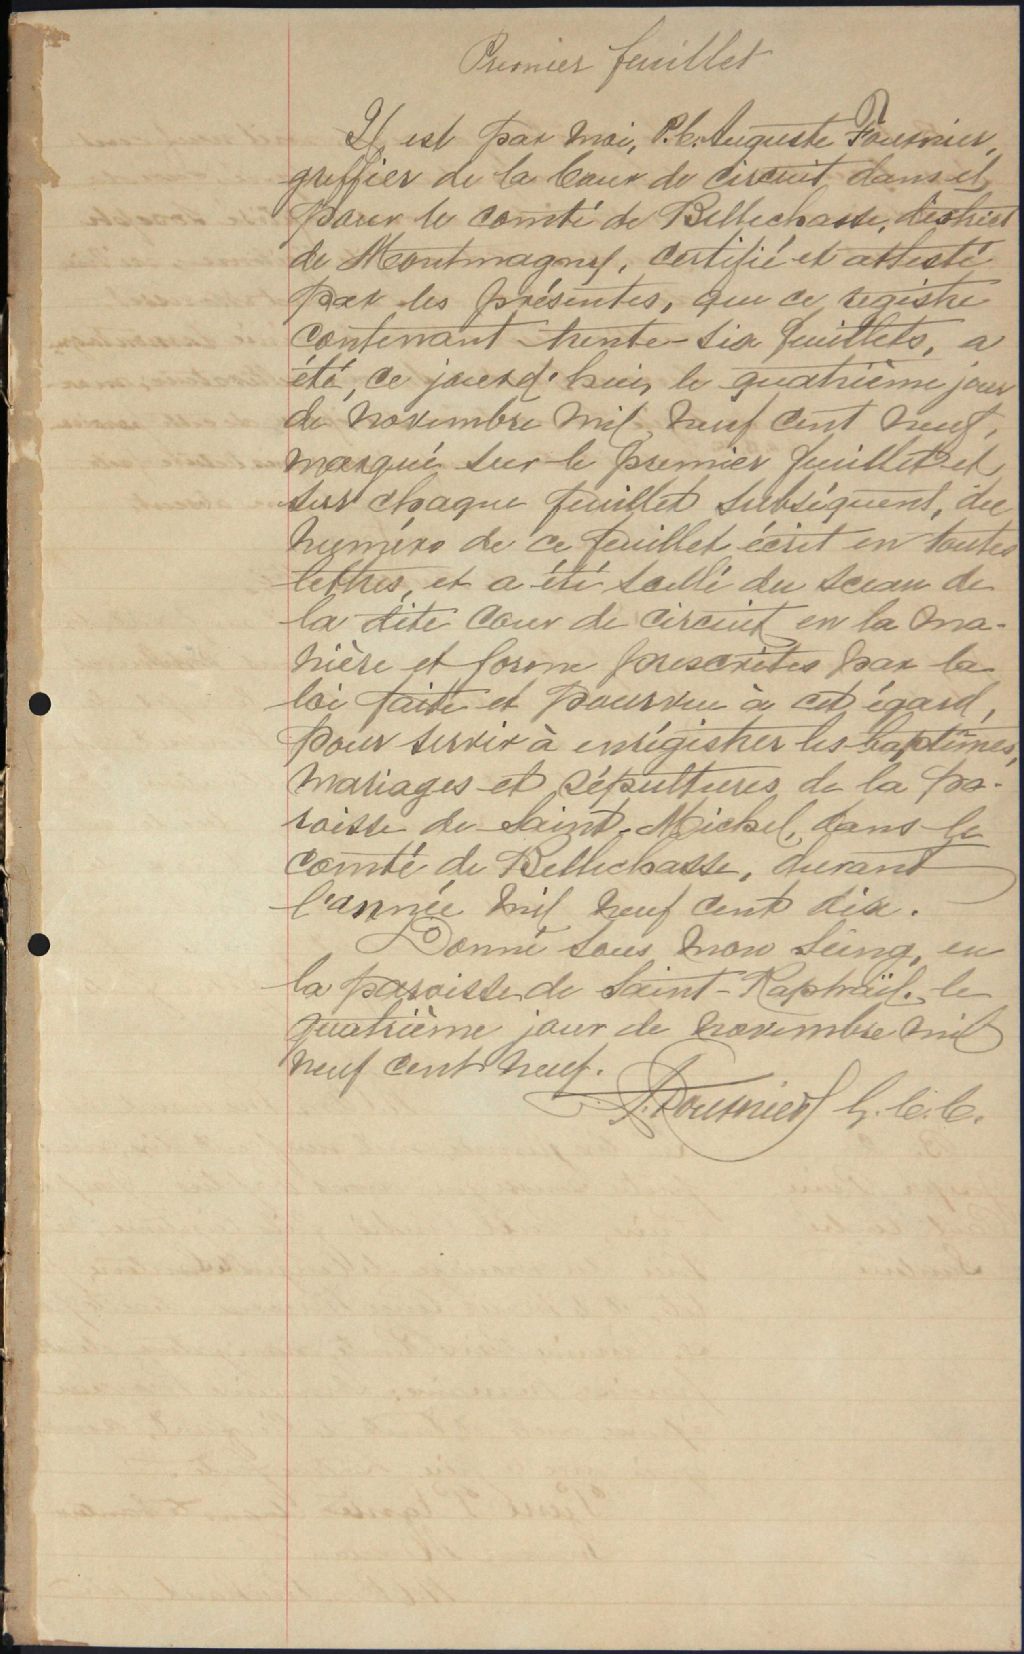 Premier feuillet
Il est par moi, P.C. Auguste Fournier,
greffier de la Cour de circuit dans et
pour le comté de Bellechasse, district
de Montmagny, certifié et attesté
par les présentes, que ce registre
contenant trente-six feuillets, a
été, ce jourd'hui, le quatrième jour
de novembre mil neuf cent neuf,
marqué sur le premier feuillet et
sur chaque feuillet subséquent, du
numéro de ce feuillet écrit en toutes
lettres, et a été scellé du sceau de
la dite Cour de circuit en la ma-
nière et forme prescrites par la
loi faite et pourvue à cet égard,
pour servir à enrégistrer les baptêmes,
mariages et sépultures de la pa-
roisse de Saint-Michel, dans le
comté de Bellechasse, durant
l'année mil neuf cent dix.
Donné sous mon seing, en
la paroisse de Saint-Raphaël, le
quatrième jour de novembre mil
neuf cent neuf.
A. Fournier G.C.C.